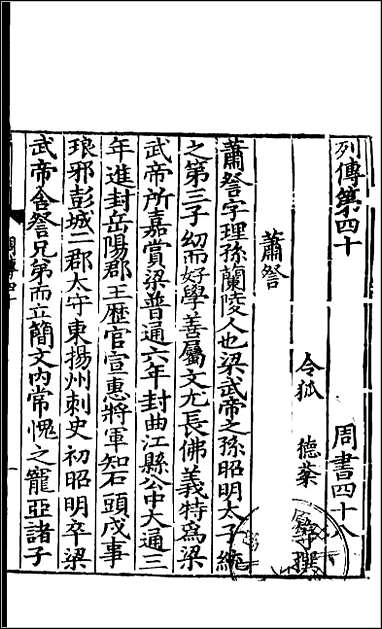 列傳第四十　周書四十八
令狐　德棻　等撰
蕭詧
蕭詧字理孫蘭陵人也梁武帝之孫昭明太子統
之第三子幼而好學善屬文尤長佛義特爲梁
武帝所嘉賞梁普通六年封曲江縣公中大通三
年進封岳陽郡王歷官宣惠將軍知石頭戍事
琅邪彭城二郡太守東揚州刺史初昭明卒梁
武帝舍詧兄弟而立簡文内常愧之寵亞諸子